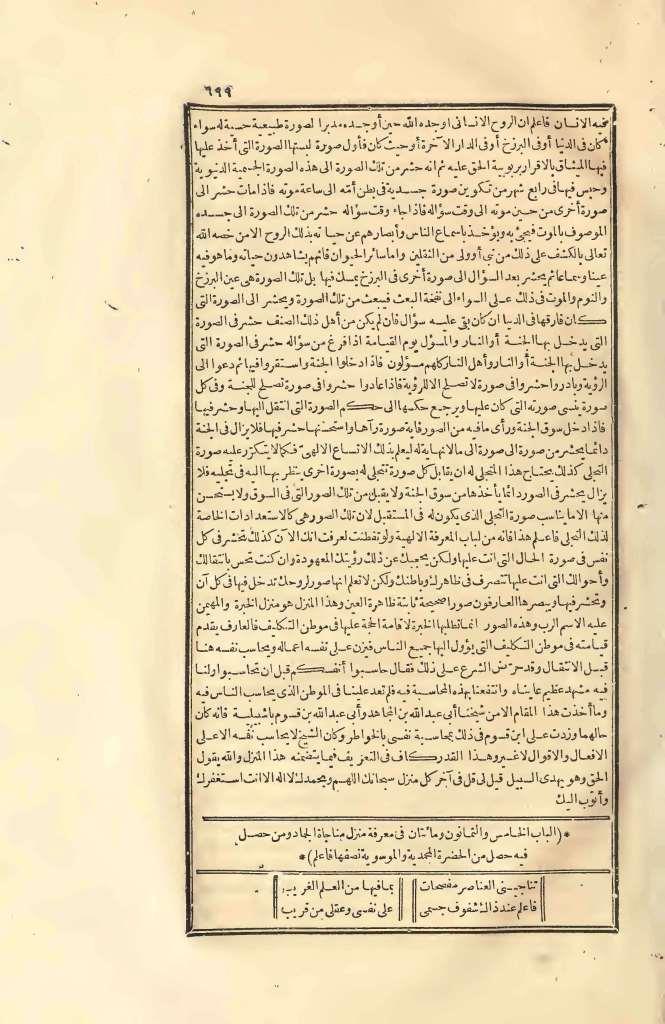 ٦٩٩
فاعلم ان الروح الانسانى أوجده الله حين أوجده مدبرا لصورة طبيعية حسية له سواء
كان فى الدنيا أو فى البرزخ أو فى الدار الآخرة أو حيث كان فأول صورة لبستها الصورة التى أخذ عليها
فيها الميثاق بالاقرار بربوبية الحق عليه ثم انه حشر من تلك الصورة الى هذه الصورة الجسمية الدنيوية
وحبس فيها فى رابع شهر من تكوين صورة جسده فى بطن أمه الى ساعة موته فاذا مات حشر الى
صورة أخرى من حين موته الى وقت سؤاله فاذا جاء وقت سؤاله حشر من تلك الصورة الى جسده
الموصوف بالموت فيحيى به ويؤخذ باسماع الناس وأبصارهم عن حياته بذلك الروح الا من خصه الله
تعالى بالكشف على ذلك من نبى أو ولى من الثقلين وأما سائر الحيوان فانهم يشاهدون حياته وما هو فيه
عينا وسماعا ثم يحشر بعد السؤال الى صورة أخرى فى البرزخ يمسك فيها بل تلك الصورة هى عين البرزخ
والنوم والموت فى ذلك على السواء الى نفخة البعث فيبعث من تلك الصورة ويحشر الى الصورة التى
كان فارقها فى الدنيا ان كان بقى عليه سؤال فان لم يكن من أهل ذلك الصنف حشر فى الصورة
التى يدخل بها الجنة أو النار والمسؤل يوم القيامة اذا فرغ من سؤاله حشر فى الصورة التى
يدخل بها الجنة أو النار وأهل النار كلهم مسؤلون فاذا دخلوا الجنة واستقروا فيها ثم دعوا الى
الرؤية وبادروا حشروا فى صورة لا تصلح الا للرؤية فاذا عادوا حشروا فى صورة تصلح للجنة وفى كل
صورة ينسى صورته التى كان عليها ويرجع حكمه الى حكم الصورة التى انتقل اليها وحشر فيها
فاذا دخل سوق الجنة ورأى ما فيه من الصور فاية صورة رآها واستحسنها حشر فيها فلا يزال فى الجنة
دائما يحشر من صورة الى صورة الى ما لا نهاية له ليعلم بذلك الاتساع الالهى فكما لا يتكرر عليه صورة
التجلى كذلك يحتاج هذا المتجلى له ان يقابل كل صورة تتجلى له بصورة اخرى ينظر بها اليه فى تجليه فلا
يزال يحشر فى الصور دائما يأخذها من سوق الجنة ولا يقبل من تلك الصور التى فى السوق ولا يستحسن
منها الا ما يناسب صورة التجلى الذى يكون له فى المستقبل لان تلك الصور هى كالاستعدادات الخاصة
لذلك التجلى فاعلم هذا فانه من لباب المعرفة الالهية ولو تفطنت لعرفت انك الآن كذلك تحشر فى كل
نفس فى صورة الحال التى انت عليها ولكن يحجبك عن ذلك رؤيتك المعهودة وان كنت تحس بانتقالك
وأحوالك التى انت عليها تتصرف فى ظاهرك وباطنك ولكن لا تعلم انها صور لروحك تدخل فيها فى كل آن
وتحشر فيها ويبصرها العارفون صورا صحيحة ثابتة ظاهرة العين وهذا المنزل هو منزل الخبرة والمهيمن
عليه الاسم الرب وهذه الصور انما تطلبها الخبرة لاقامة الحجة عليها فى موطن التكليف فالعارف يقدم
قيامته فى موطن التكليف التى يؤول اليها جميع الناس فيزن على نفسه اعماله ويحاسب نفسه هنا
قبل الانتقال وقد حرّض الشرع على ذلك فقال حاسبوا أنفسكم قبل ان تحاسبوا ولنا
فيه مشهد عظيم عايناه وانتفعنا بهذه المحاسبة فيه فلم تعد علينا فى الموطن الذى يحاسب الناس فيه
وما أخذت هذا المقام الا من شيخنا أبى عبد الله بن المجاهد وأبى عبد الله بن قسوم باشبيلية فانه كان
حالهما وزدت على ابن قسوم فى ذلك بمحاسبة نفسى بالخواطر وكان الشيخ لا يحاسب نفسه الا على
الافعال والاقوال لا غير وهذا القدر كاف فى التعريف فيما يتضمنه هذا المنزل والله يقول
الحق وهو يهدى السبيل قيل لى قل فى آخر كل منزل سبحانك اللهم وبحمدك لا اله الا انت استغفرك
وأتوب اليك
*(الباب الخامس والثمانون ومائتان فى معرفة منزل مناجاة الجماد ومن حصل
فيه حصل من الحضرة المحمدية والموسوية نصفها فاعلم)*
تناجينى العناصر مفصحات بما فيها من العلم الغريب
فاعلم عند ذاك شفوف جسمى على نفسى وعقلى من قريب